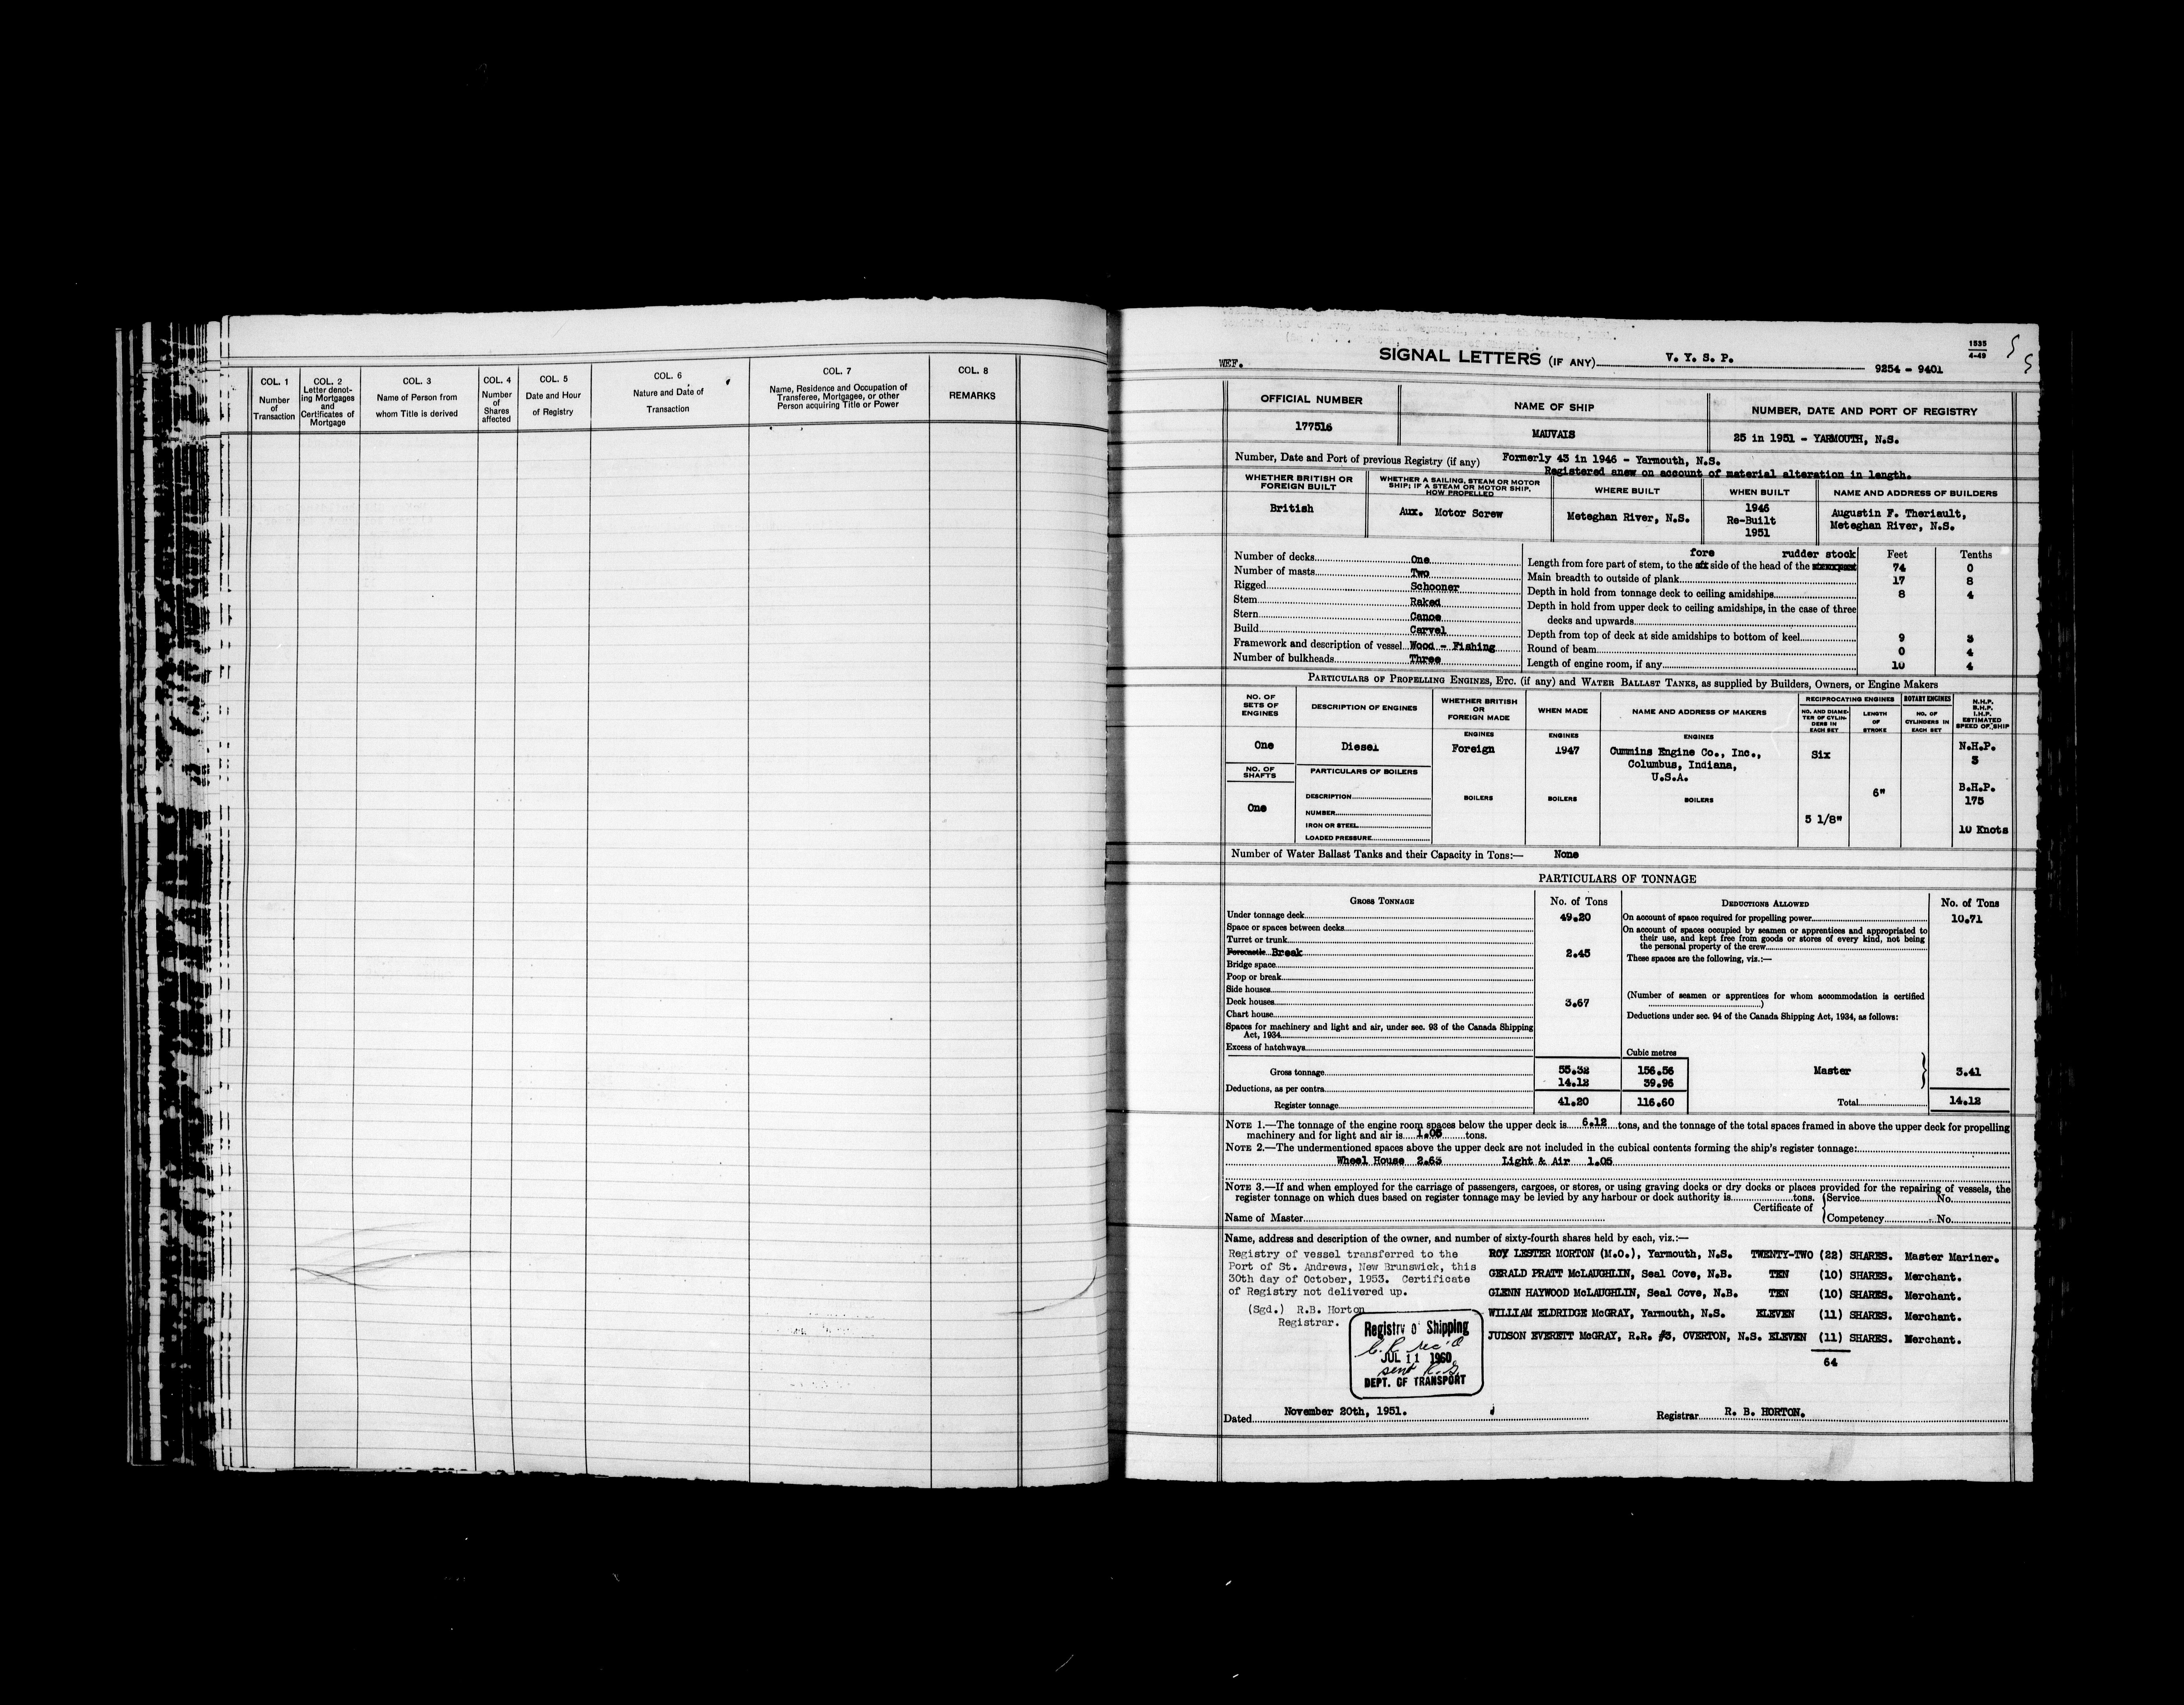 COL. 1
Number
of
Transaction
COL. 2
Letter denot-
ing Mortgages
and
Certificates of
Mortgage
COL. 3
Name of Person from
whom Title is derived
COL. 4
Number
of
Shares
affected
COL. 5
Date and Hour
of Registry
COL. 6
Nature and Date of
Transaction
COL. 7
Name, Residence and Occupation of
Transferee, Mortgagee, or other
Person acquiring Title or Power
COL. 8
REMARKS
1535
4-49
5
5
WEF.
SIGNAL LETTERS (IF ANY) V. Y. S. P.
9254 - 9401
OFFICIAL NUMBER
177516
NAME OF SHIP
MAUVAIS
NUMBER, DATE AND PORT OF REGISTRY
25 in 1951 - YARMOUTH, N.S.
Number, Date and Port of previous Registry (if any) Formerly 43 in 1946 - Yarmouth, N.S.
Registered anew on account of material alteration in length.
WHETHER BRITISH OR
FOREIGN BUILT
British
WHETHER A SAILING, STEAM OR MOTOR
SHIP; IF A STEAM OR MOTOR SHIP,
HOW PROPELLED
Aux. Motor Screw
WHERE BUILT
Meteghan River, N.S.
WHEN BUILT
1946
Re-Built
1951
NAME AND ADDRESS OF BUILDERS
Augustin F. Theriault,
Meteghan River, N.S.
Number of decks One
Number of masts Two
Rigged Schooner
Stem Raked
Stern Canoe
Build Carvel
Framework and description of vessel Wood - Fishing
Number of bulkheads Three
Feet Tenths
fore rudder stock
Length from fore part of stem, to the aft side of the head of the sternpost 74 0
Main breadth to outside of plank 17 8
Depth in hold from tonnage deck to ceiling amidships 8 4
Depth in hold from upper deck to ceiling amidships, in the case of three
decks and upwards
Depth from top of deck at side amidships to bottom of keel 9 3
Round of beam 0 4
Length of engine room, if any 10 4
PARTICULARS OF PROPELLING ENGINES, ETC. (if any) and WATER BALLAST TANKS, as supplied by Builders, Owners, or Engine Makers
NO. OF
SETS OF
ENGINES
One
NO. OF
SHAFTS
One
DESCRIPTION OF ENGINES
Diesel
PARTICULARS OF BOILERS
DESCRIPTION
NUMBER
IRON OR STEEL
LOADED PRESSURE
WHETHER BRITISH
OR
FOREIGN MADE
ENGINES
Foreign
BOILERS
WHEN MADE
ENGINES
1947
BOILERS
NAME AND ADDRESS OF MAKERS
ENGINES
Cummins Engine Co., Inc.,
Columbus, Indiana,
U.S.A.
BOILERS
RECIPROCATING ENGINES
NO. AND DIAME-
TER OF CYLIN-
DERS IN
EACH SET
Six
5 1/8"
LENGTH
OF
STROKE
6"
ROTARY ENGINES
NO. OF
CYLINDERS IN
EACH SET
N.H.P.
B.H.P.
I.H.P.
ESTIMATED
SPEED OF SHIP
N.H.P.
3
B.H.P.
175
10 Knots
Number of Water Ballast Tanks and their Capacity in Tons:— None
PARTICULARS OF TONNAGE
GROSS TONNAGE No. of Tons
Under tonnage deck 49.20
Space or spaces between decks
Turret or trunk
Forecastle Break 2.45
Bridge space
Poop or break
Side houses
Deck houses 3.67
Chart house
Spaces for machinery and light and air, under sec. 93 of the Canada Shipping
Act, 1934
Excess of hatchways
Cubic metres
Gross tonnage 55.32 156.56
Deductions, as per contra 14.12 39.96
Register tonnage 41.20 116.60
DEDUCTIONS ALLOWED No. of Tons
On account of space required for propelling power 10.71
On account of spaces occupied by seamen or apprentices and appropriated to
their use, and kept free from goods or stores of every kind, not being
the personal property of the crew
These spaces are the following, viz.:—
(Number of seamen or apprentices for whom accommodation is certified
)
Deductions under sec. 94 of the Canada Shipping Act, 1934, as follows:
Master 3.41
Total 14.12
NOTE 1.—The tonnage of the engine room spaces below the upper deck is 6.12 tons, and the tonnage of the total spaces framed in above the upper deck for propelling
machinery and for light and air is 1.05 tons.
NOTE 2.—The undermentioned spaces above the upper deck are not included in the cubical contents forming the ship's register tonnage:
Wheel House 2.63 Light & Air 1.05
NOTE 3.—If and when employed for the carriage of passengers, cargoes, or stores, or using graving docks or dry docks or places provided for the repairing of vessels, the
register tonnage on which dues based on register tonnage may be levied by any harbour or dock authority is tons.
Certificate of
Service No.
Competency No.
Name of Master
Name, address and description of the owner, and number of sixty-fourth shares held by each, viz.:—
Registry of vessel transferred to the
Port of St. Andrews, New Brunswick, this
30th day of October, 1953. Certificate
of Registry not delivered up.
(Sgd.) R.B. Horton
Registrar.
ROY LESTER MORTON (M.O.), Yarmouth, N.S. TWENTY-TWO (22) SHARES. Master Mariner.
GERALD PRATT McLAUGHLIN, Seal Cove, N.B. TEN (10) SHARES. Merchant.
GLENN HAYWOOD McLAUGHLIN, Seal Cove, N.B. TEN (10) SHARES. Merchant.
WILLIAM ELDRIDGE McGRAY, Yarmouth, N.S. ELEVEN (11) SHARES. Merchant.
JUDSON EVERETT McGRAY, R.R. #3, OVERTON, N.S. ELEVEN (11) SHARES. Merchant.
64
Registry of Shipping
C.R. rec'd
JUL 11 1960
sent
DEPT. OF TRANSPORT
Dated November 20th, 1951.
Registrar R. B. HORTON.